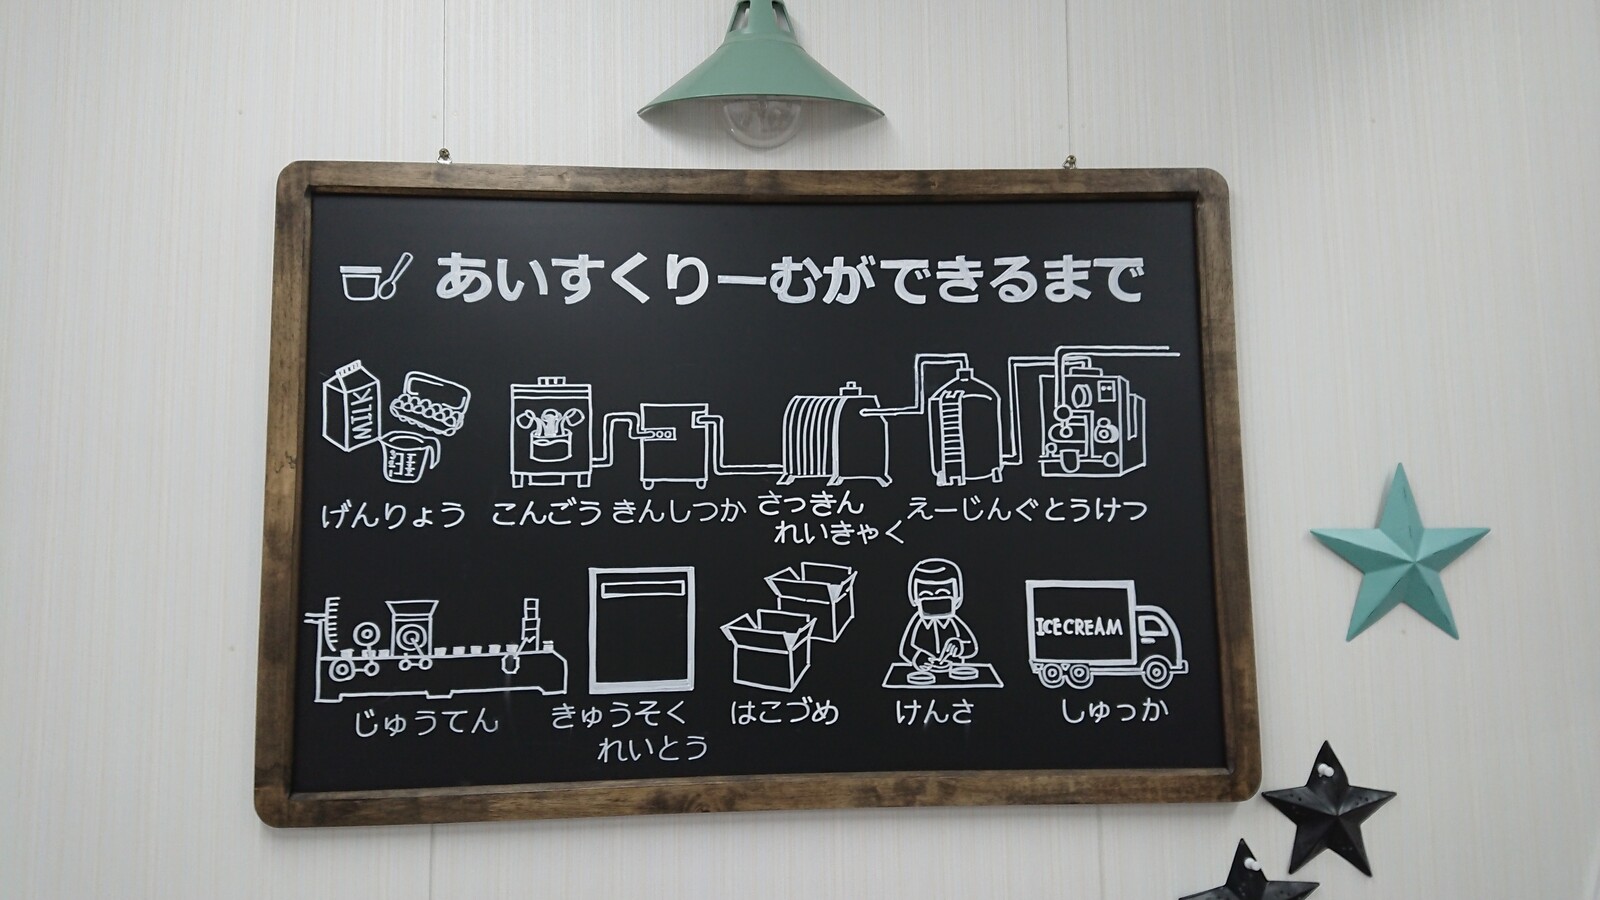 あいすくりーむができるまで
MILK
げんりょう
こんごう
きんしつか
さっきん
れいきゃく
えーじんぐ
とうけつ
じゅうてん
きゅうそく
れいとう
はこづめ
けんさ
ICECREAM
しゅっか